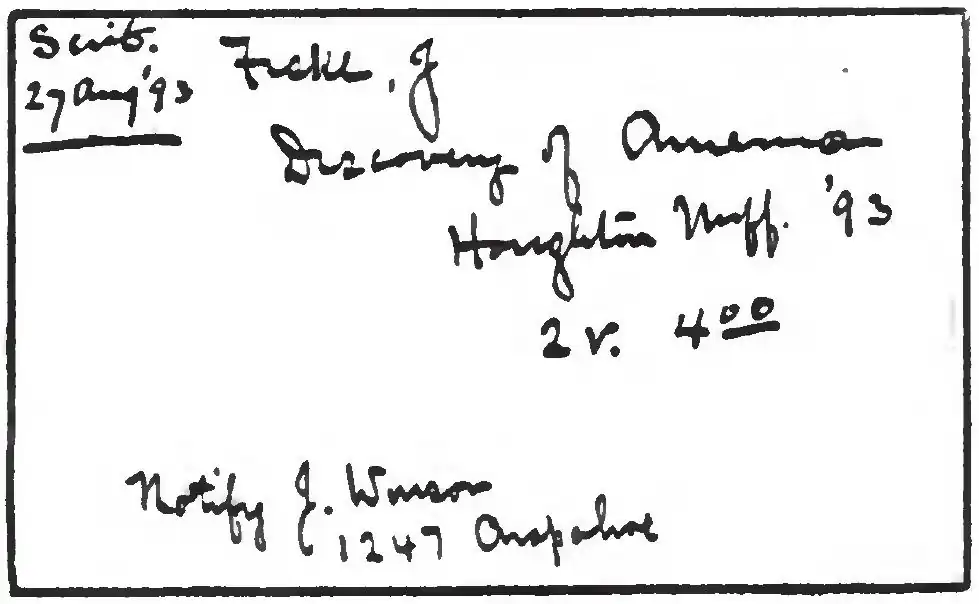 Scrib.
27 Aug '93
Fiske, J
Discovery of America
Houghton Miff. '93
2 v. 4 00
Notify J. Winsor
1247 Arapahoe